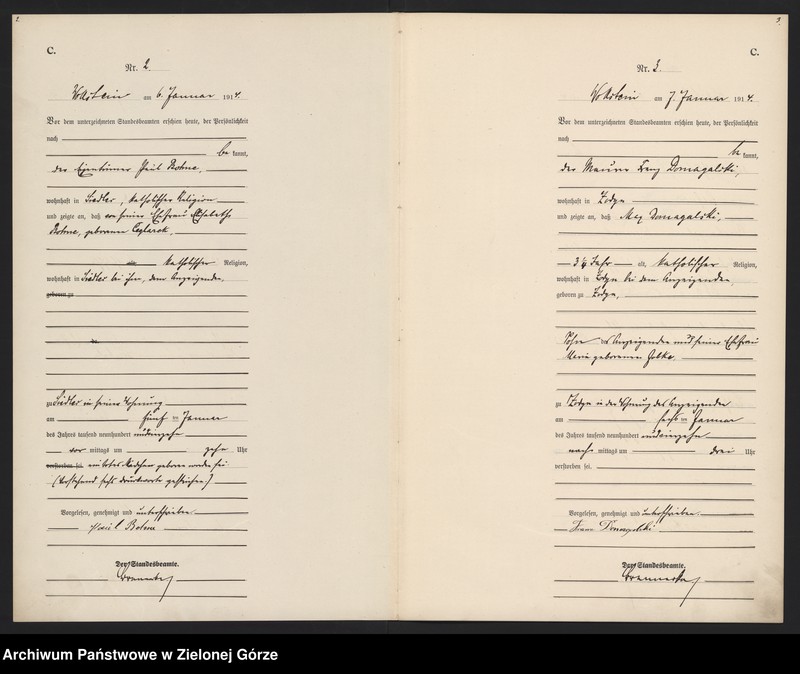 2.
C.
Nr. 2.
Wollstein am 6. Januar 1914.
Vor dem unterzeichneten Standesbeamten erschien heute, der Persönlichkeit
nach
be kannt,
der Eigentümer Paul Bohne,
wohnhaft in Siedler, katholischer Religion
und zeigte an, daß von seiner Ehefrau Elisabeth
Bohne, geborenen
katholischer Religion,
wohnhaft in Siedler bei ihm, dem Anzeigenden,
geboren zu
zu Siedler in seiner Wohnung
am fünf ten Januar
des Jahres tausend neunhundert und vierzehn
vor mittags um zehn Uhr
verstorben sei. ein totes Mädchen geboren worden sei
(Vorstehend sechs Druckworte gestrichen)
Vorgelesen, genehmigt und unterschrieben
Paul Bohne
Der Standesbeamte.
3.
C.
Nr. 3.
Wollstein am 7. Januar 1914.
Vor dem unterzeichneten Standesbeamten erschien heute, der Persönlichkeit
nach
be kannt,
der Maurer Franz Domagalski,
wohnhaft in Zodyn
und zeigte an, daß Max Domagalski,
3 1/4 Jahr alt, katholischer Religion,
wohnhaft in Zodyn bei dem Anzeigenden,
geboren zu Zodyn,
Sohn des Anzeigenden und seiner Ehefrau
Maria geborenen
zu Zodyn in der Wohnung des Anzeigenden
am sechs ten Januar
des Jahres tausend neunhundert und vierzehn
nach mittags um drei Uhr
verstorben sei.
Vorgelesen, genehmigt und unterschrieben.
Franz Domagalski
Der Standesbeamte.
Archiwum Państwowe w Zielonej Górze